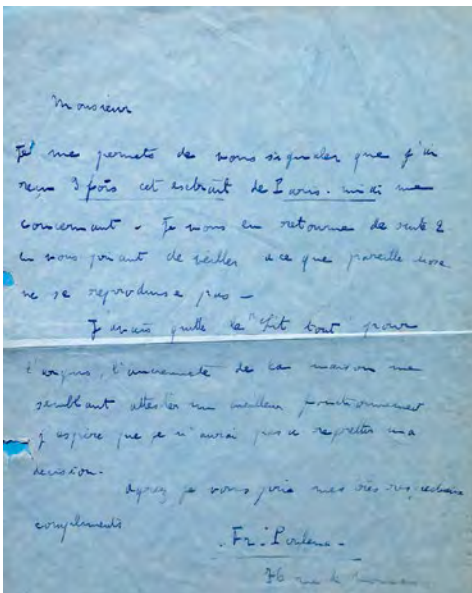 Monsieur
Je me permets de vous signaler que j'ai
reçu 3 fois cet extrait de Paris-midi me
concernant - Je vous en retourne de suite 2
en vous priant de veiller a ce que pareille chose
ne se reproduise pas -
J'avais quitté le "Lit tout" pour
l'argus, l'ancienneté de la maison me
semblant attester un meilleur fonctionnement
j'espère que je n'aurai pas a regretter ma
decision.
Agréez je vous prie mes très respectueux
compliments
- Fr. Poulenc -
76 rue de Monceau